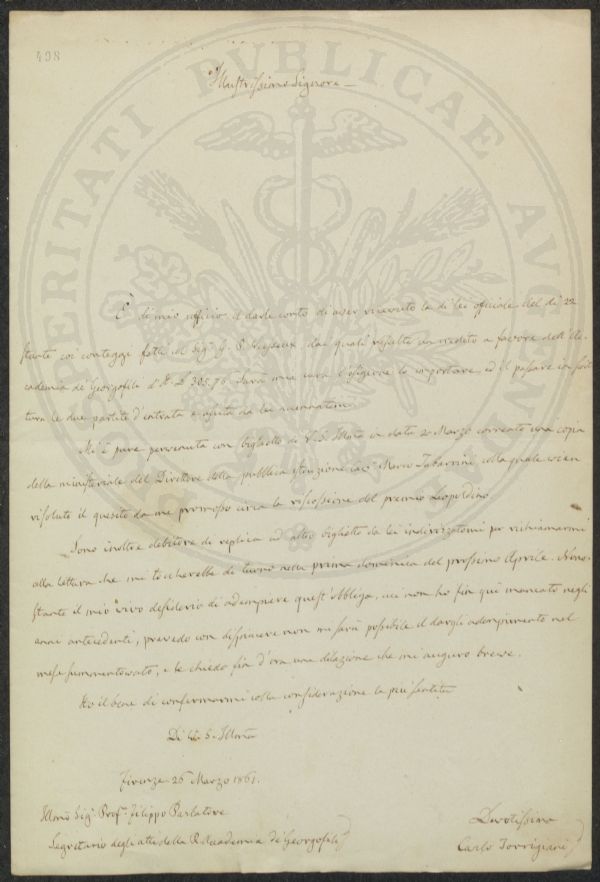 498
Illustrissimo Signore
È di mio ufficio il darle conto di aver ricevuto la di lei officiale del dì 22
stante coi conteggi fatti al Sig. Vieusseux, dai quali resulta un credito a favore dell'Ac-
cademia de' Georgofili d' It. L. 305,76. Sarà mia cura l'esigerne lo importare, ed il passare in scrit-
tura le due partite d'entrata e uscita da lei accennatemi.
Mi è pure pervenuta con biglietto di V. S. Illma in data 20 Marzo corrente una copia
della ministeriale del Direttore della pubblica istruzione Marco Tabarrini, colla quale vien
risoluto il quesito da me promosso circa la riscossione del premio Leopoldino.
Sono inoltre debitore di replica ad altro biglietto da lei indirizzatomi per richiamarmi
alla lettura che mi toccherebbe di turno nella prima domenica del prossimo Aprile. Nono-
stante il mio vivo desiderio di adempiere quest'obbligo, cui non ho fin qui mancato negli
anni antecedenti, prevedo con dispiacere non mi sarà possibile il dargli adempimento nel
mese summentovato, e le chiedo fin d'ora una dilazione che mi auguro breve.
Ho il bene di confermarmi colla considerazione la più sentita
Di V. S. Illma
Firenze 26 Marzo 1861.
Illmo Sig. Prof. Filippo Parlatore
Segretario degli atti della R. Accademia de' Georgofili
Devotissimo
Carlo Torrigiani
PROSPERITATI PUBLICAE AUGENDAE